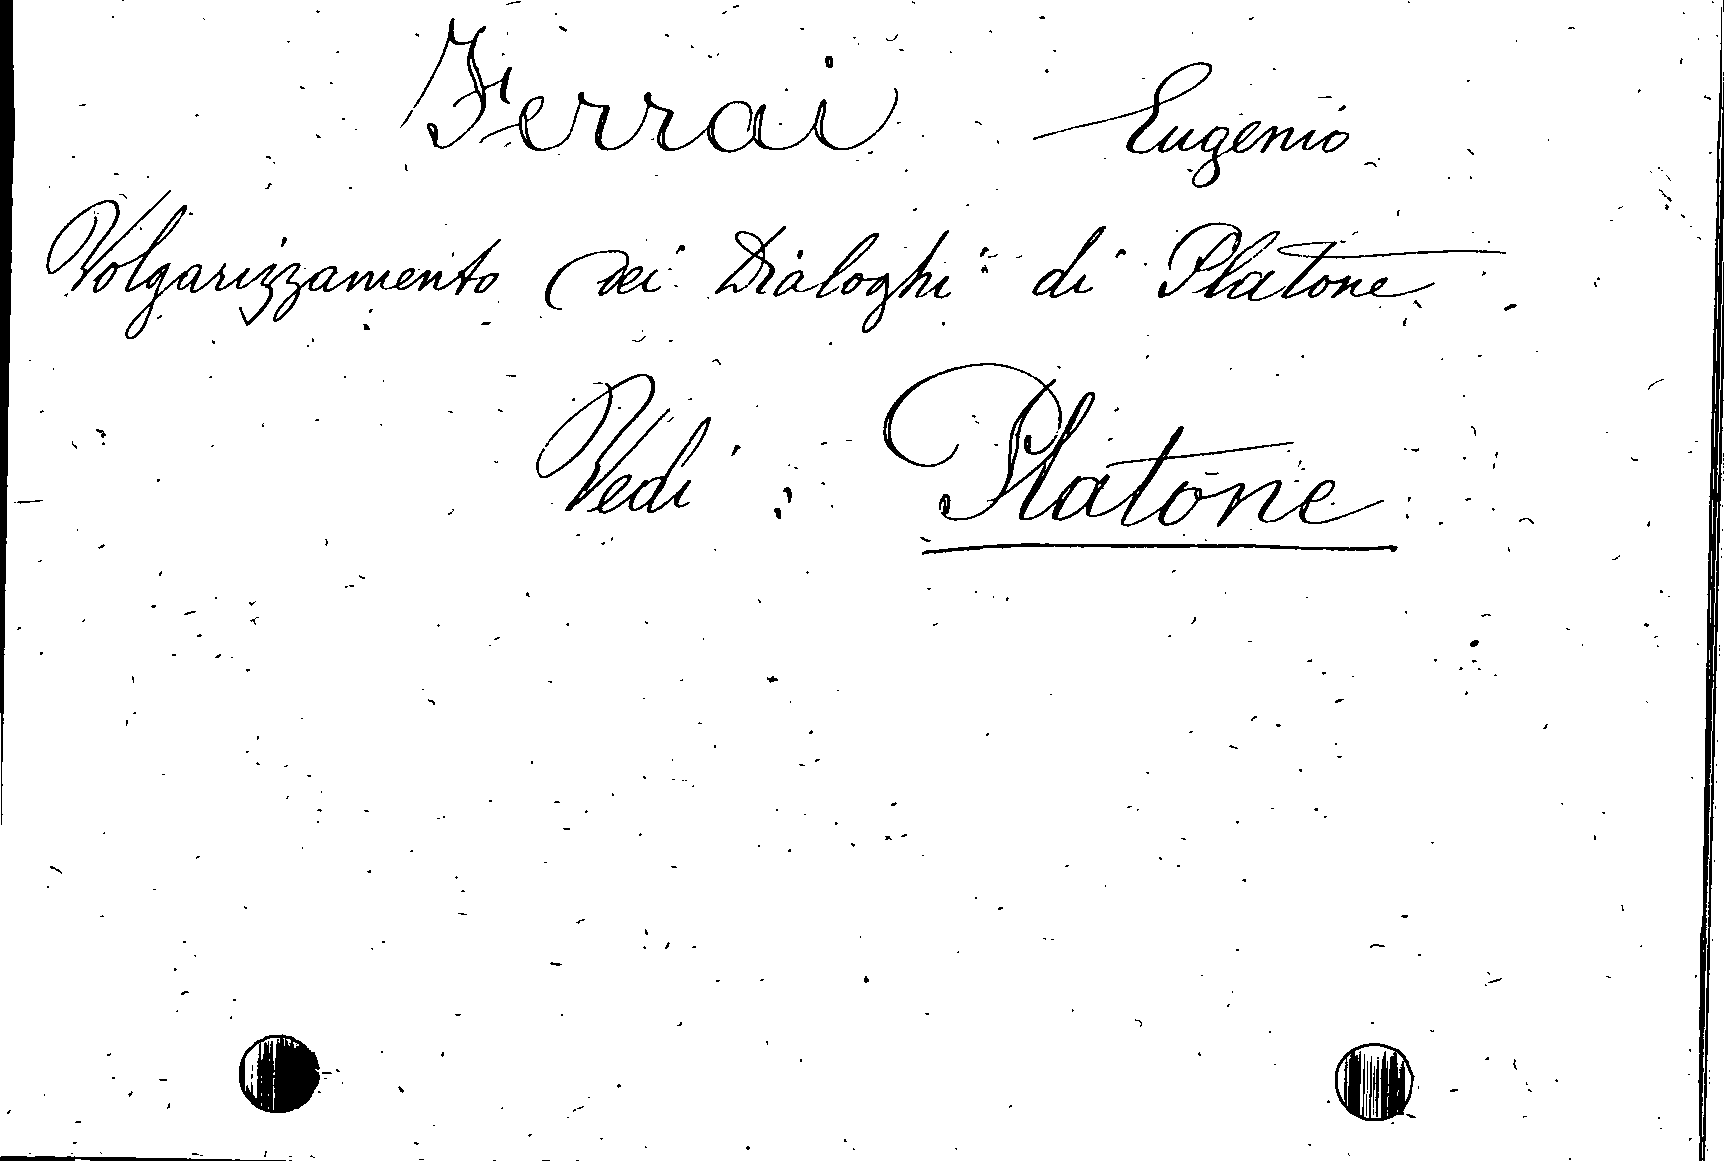 Ferrai Eugenio
Volgarizzamento dei Dialoghi di Platone
Vedi: Platone